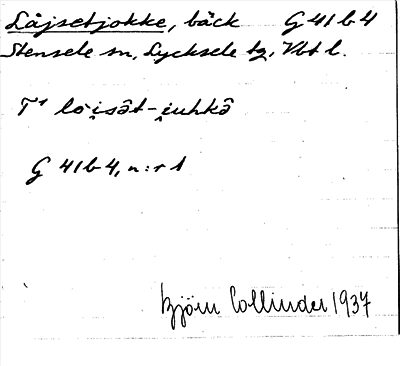 Låjsetjokke, bäck G 41 b 4
Stensele sn, Lycksele tg, Vbt l.
T¹ lò̭i̭sât-i̭uhkâ
G 41 b 4, n:r 1
Björn Collinder 1937